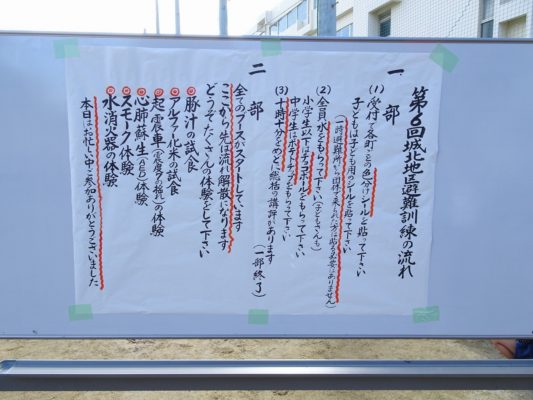 第6回城北地区避難訓練の流れ
一部
(1) 受付で各町ごとの色分けシールを貼って下さい
子どもは子ども用のシールを貼って下さい
(一時避難所から団体で来られた方は貼る必要はありません)
(2) 全員水をもらって下さい(子どもさんも)
小学生以下はチョコボールをもらって下さい
中学生はポテトチップをもらって下さい
(3) 十時十分をめどに総括の講評があります
(一部終了)
二部
全てのブースがスタートしています
ここから先は流れ解散になります
どうぞたくさんの体験をして下さい
◎豚汁の試食
◎アルファ化米の試食
◎起震車(震度7の揺れ)の体験
◎心肺蘇生(AED)体験
◎スモーク体験
◎水消火器の体験
本日はお忙しい中ご参加ありがとうございました